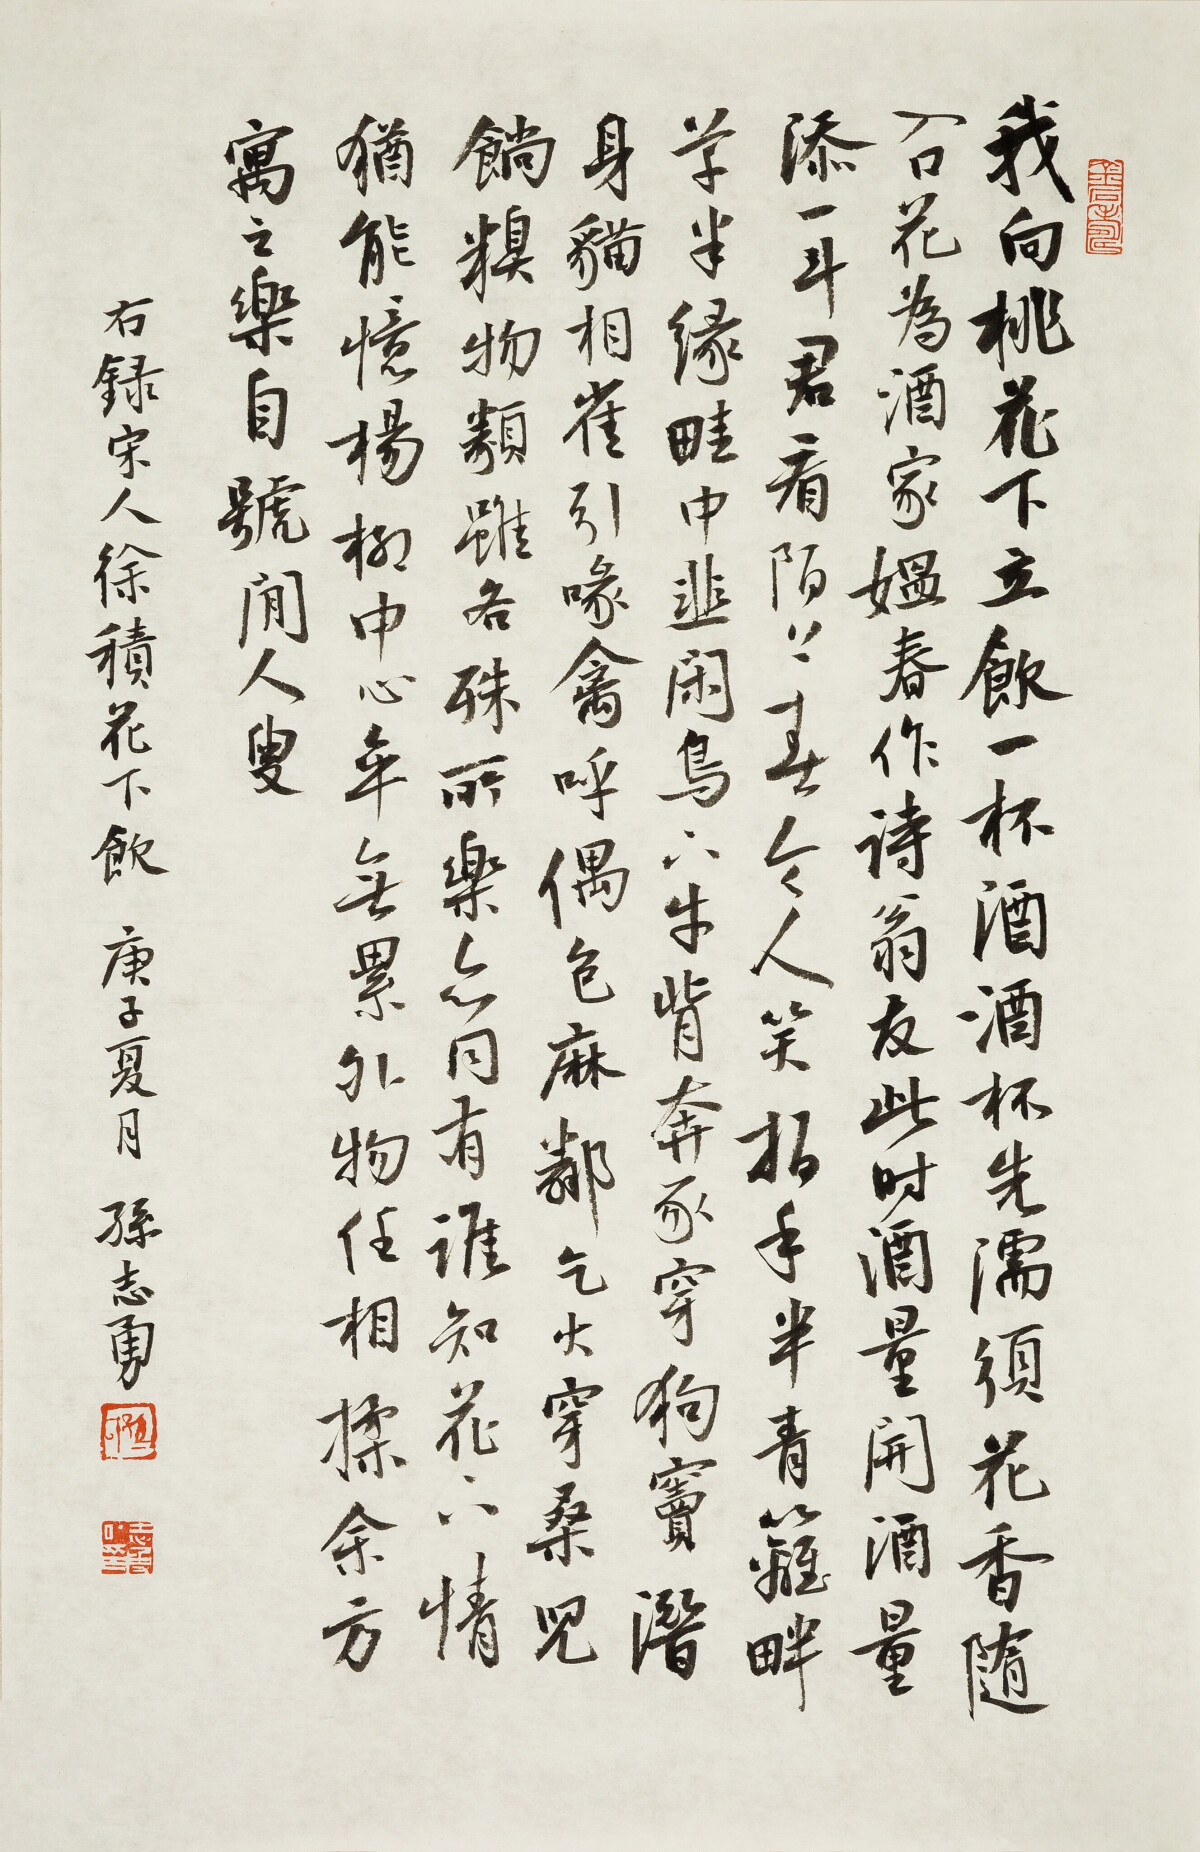 我向桃花下立飲一杯酒酒杯先濡須花香隨
入口花為酒家媼春作诗翁友此时酒量開酒量
添一斗君看陌上春令人笑拍手半青籬畔
草半緑畦中韭閑鳥下牛背奔豕穿狗竇潛
身貓相雀引喙禽呼偶包麻鄰乞火穿桑兒
餉糗物類雖各殊所樂亦同有誰知花下情
猶能憶楊柳中心平無累外物任相揉余方
寓之樂自號閒人叟
右録宋人徐積花下飲 庚子夏月 孫志勇